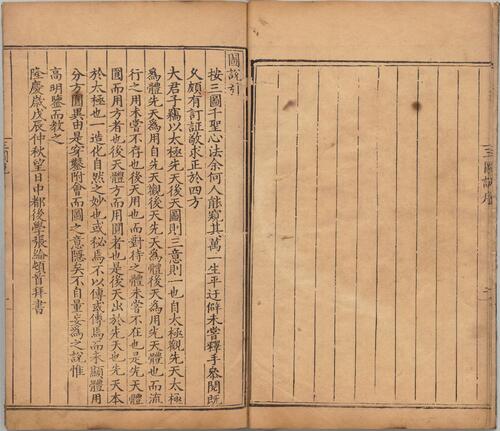 圖說引
按三圖千聖心法余何人能窺其萬一生平迂僻未嘗釋手參閱既
久頗有訂証敬求正於四方
大君子竊以太極先天後天圖則三意則一也自太極觀先天太極
為體先天為用自先天觀後天先天為體後天為用先天體也而流
行之用未嘗不存也後天用也而對待之體未嘗不在也是先天體
圓而用方者也後天體方而用圓者也是後天出於先天也先天本
於太極也一造化自然之妙也或秘焉不以傳或傳焉而未顯體用
分方圓異由是安鑿附會而圖之意隱矣不自量妄為之說惟
高明鑒而教之
隆慶歲戊辰仲秋望日中都後學張綸頓首拜書
三圖說
一
三圖說序